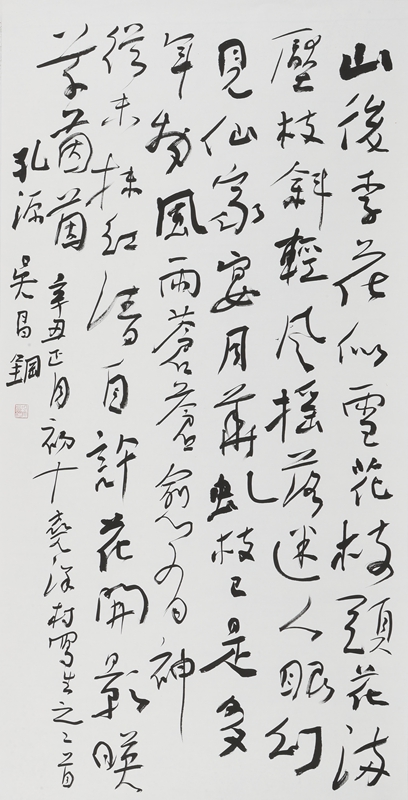 山後李花似雪花枝頭花滿
壓枝斜輕風搖落迷人眼幻
見仙家宴月華虬枝已是多
年風雨蒼蒼愈有神
從未抹紅自許花開影暎
草茵茵
辛丑正月初十深村寫生之二首
孔源 吳昌鋼